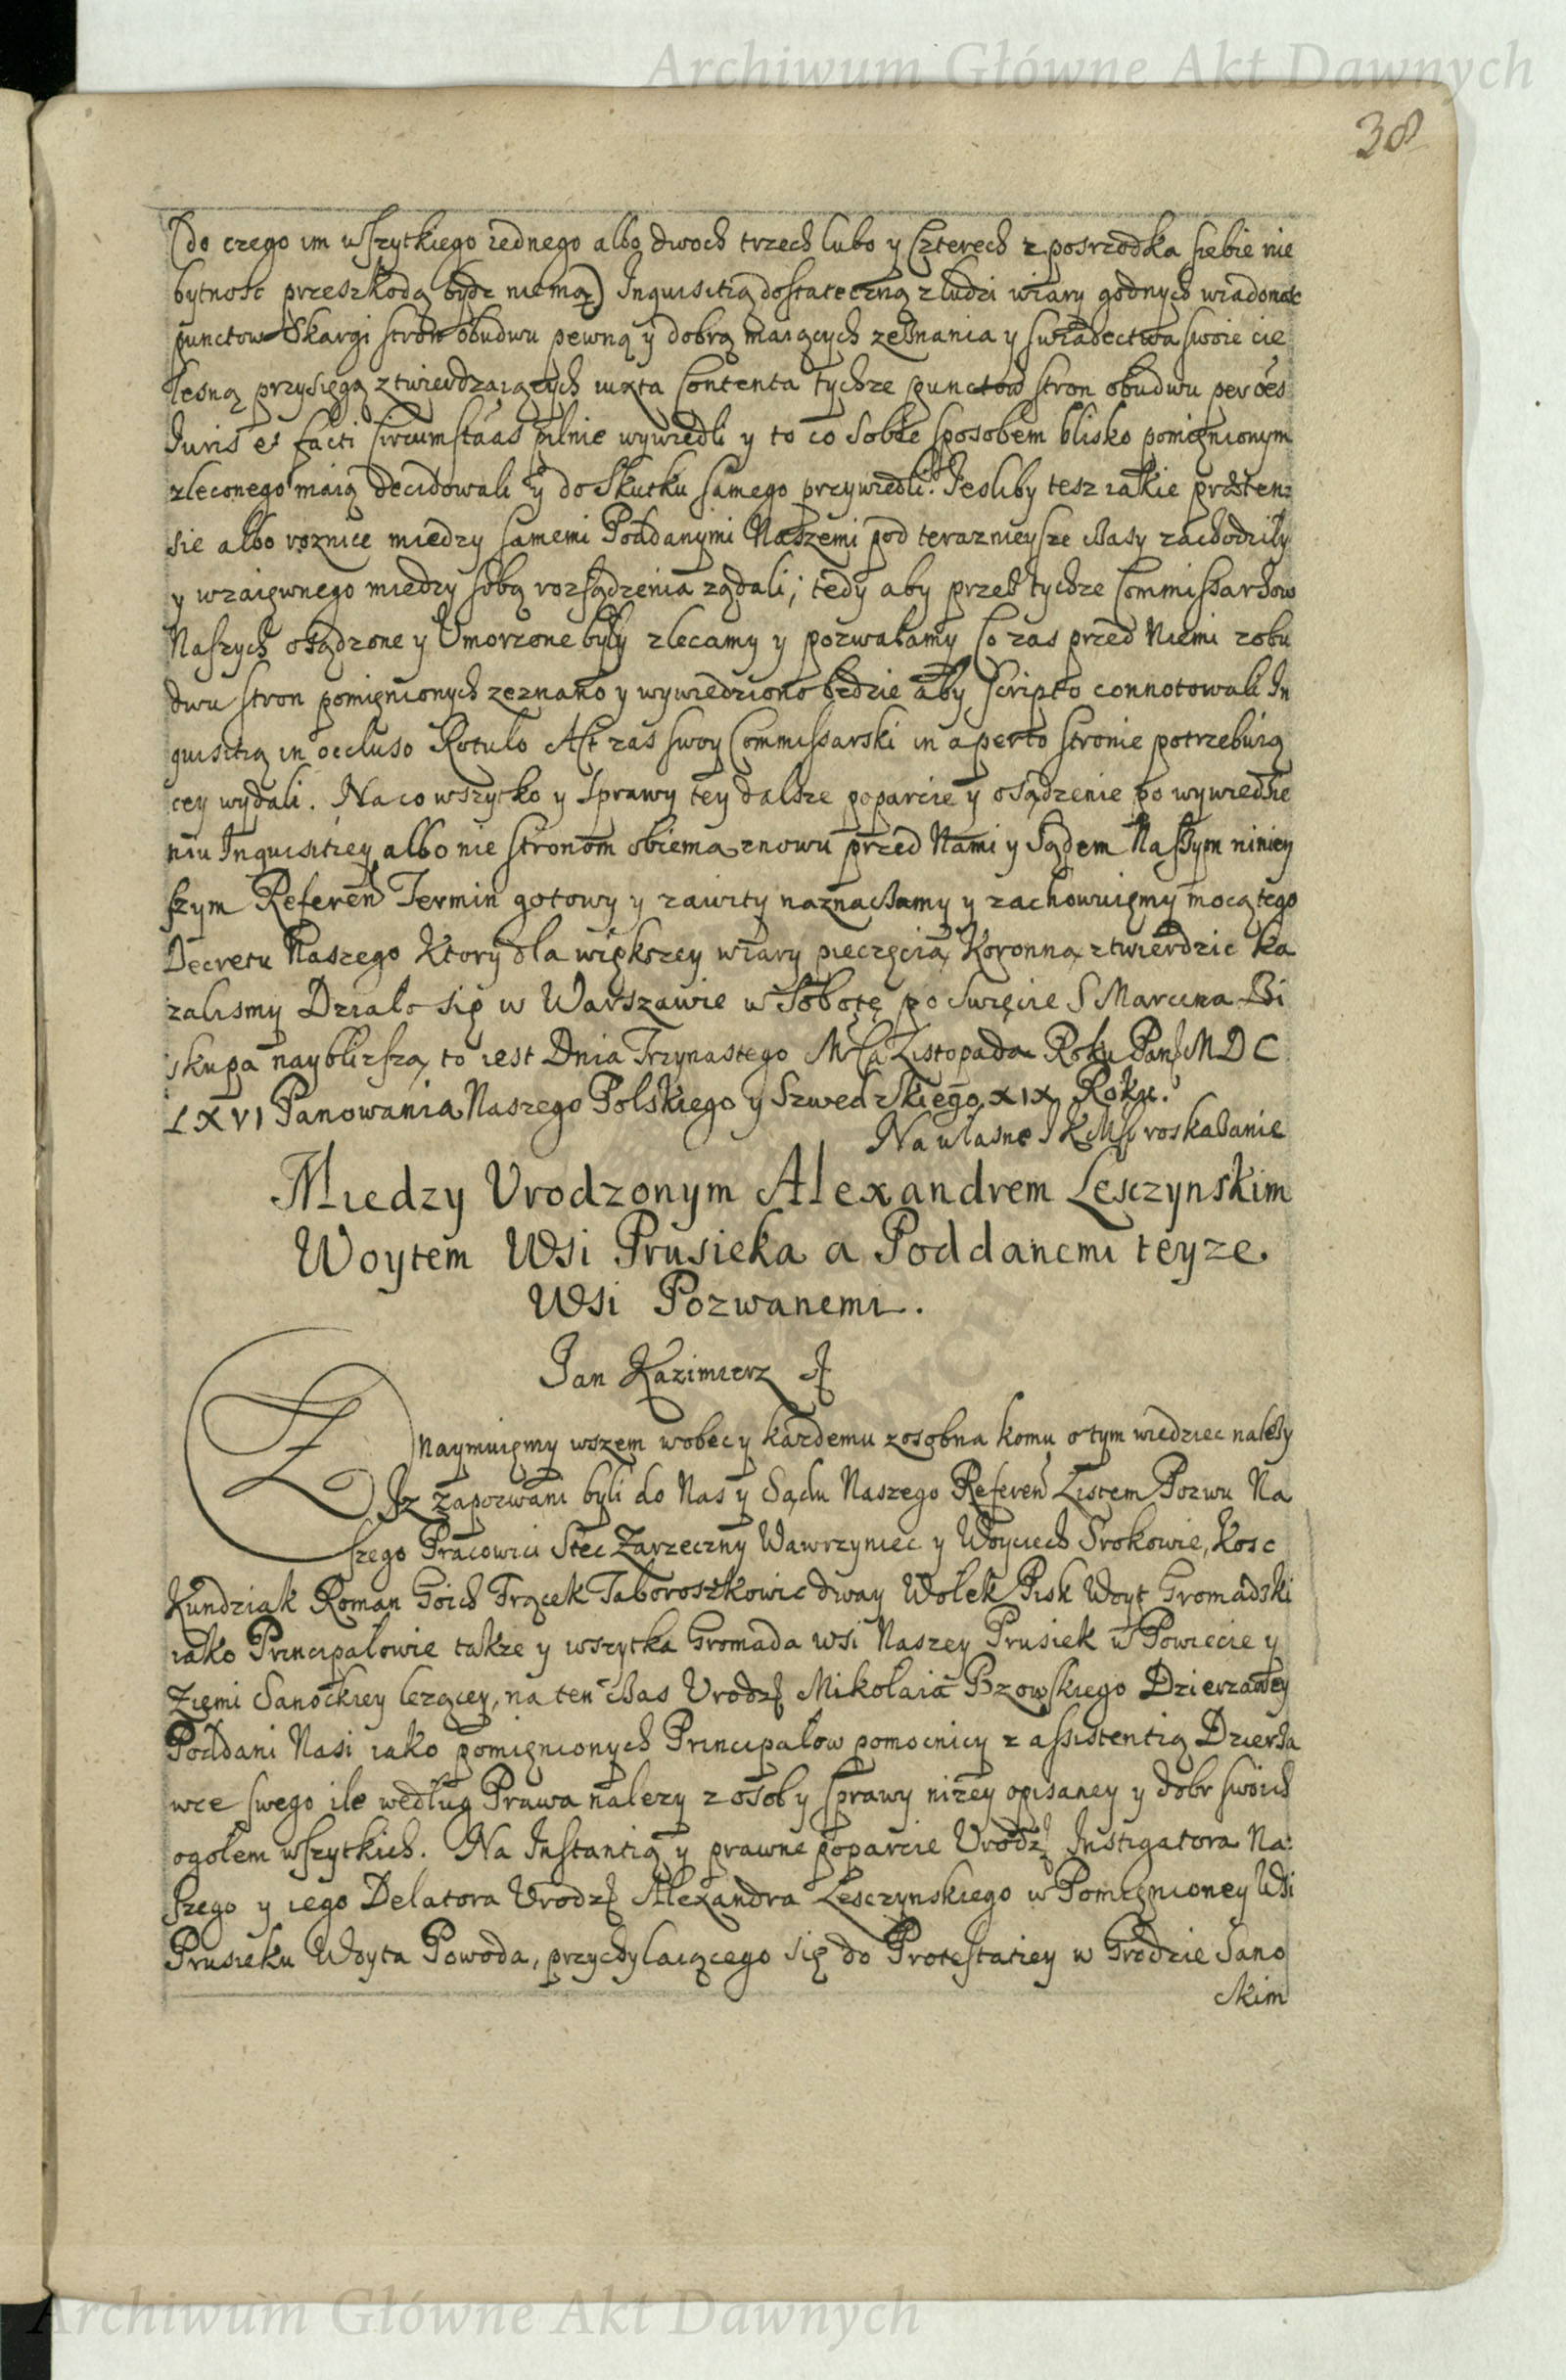 Archiwum Główne Akt Dawnych
38
(do czego im wszytkiego iednego albo dwoch trzech lubo y Czterech z posrzodka siebie nie
bytnosc przeszkodą bydz niema) Inquisitią dostateczną z ludzi wiary godnych wiadomosc
punctow Skargi stron obudwu pewną y dobrą maiących zeznania y swiadectwa swoie cie
lesną przysięgą ztwierdzaiących iuxta Contenta tychze punctow stron obudwu per oes
Iuris et facti Circumstaas pilnie wywiedli y to co Sobie sposobem blisko pomienionym
zleconego maią decidowali y do Skutku samego przywiedli. Iesliby tesz iakie præten:
sie albo roznice miedzy samemi Poddanymi Naszemi pod teraznieysze czasy zachodziły
y wzaięmnego miedzy sobą rozsądzenia ządali, tedy aby przez tychze Commissarzow
Naszych osądzone y Umorzone były zlecamy y pozwalamy Co zas przed Niemi z obu
dwu stron pomięnionych zeznano y wywiedziono będzie aby scripto connotowali In
quisitią in occluso Rotulo Act zas swoy Commissarski in aperto stronie potrzebuią
cey wydali. Na co wszytko y Sprawy tey dalsze poparcie y osądzenie po wywiedzie
niu Inquisitiey albo nie stronom obiema znowu przed Nami y Sądem Naszym niniey
szym Referen Termin gotowy y zawity naznaczamy y zachowuięmy mocą tego
Decretu Naszego Ktory dla większey wiary pieczęcią Koronną ztwierdzic ka
zalismy Działo się w Warszawie w Sobotę po Swięcie S Marcina Bi
skupa naybliższą to iest Dnia Trzynastego Mca Listopada Roku Pan MDC
LXVI Panowania Naszego Polskiego y Szwedzkiego XIX Roku.
Na własne J K Mści roskazanie
Miedzy Urodzonym Alexandrem Lesczynskim
Woytem Wsi Prusieka a Poddanemi teyze
Wsi Pozwanemi.
Jan Kazimierz
Znaymuięmy wszem wobec y kazdemu zosobna komu o tym wiedziec nalezy
Iz zapozwani byli do Nas y Sądu Naszego Referen Listem Pozwu Na
szego Pracowici Stec Zarzeczny Wawrzyniec y Woyciech Srokowie, Kosc
Kundziak Roman Goich Frącek Taboroszkowic dway Wolek Pisk Woyt Gromadski
iako Principałowie takze y wszytka Gromada wsi Naszey Prusiek w Powiecie y
Zięmi Sanockiey lezącey, na ten czas Urodz Mikołaia Bzowskiego Dzierzawey
Poddani Nasi iako pomięnionych Principałow pomocnicy z assistentią Dzierza
wce swego ile według Prawa nalezy z osoby sprawy nizey opisaney y dobr swoich
ogołem wszytkich. Na Instantią y prawne poparcie Urodz Instigatora Na:
szego y iego Delatora Urodz Alexandra Lesczynskiego w Pomięnioney Wsi
Prusieku Woyta Powoda, przychylaiącego się do Protestatiey w Grodzie Sano
ckim
Archiwum Główne Akt Dawnych